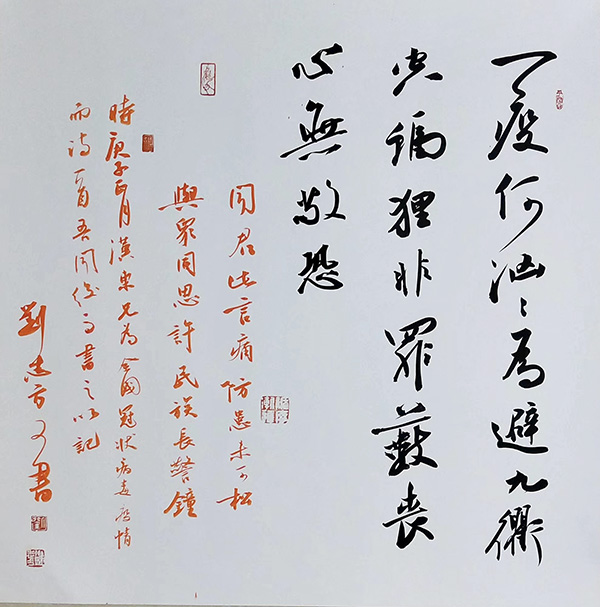 一疫何汹汹為避九衢
空禍狸非罪藪喪
心無敬恐
聞君此言痛防患未可松
與眾同思許民族長警鐘
時庚子正月漢東兄為全國冠狀病毒疫情
而詩一首吾聞後書之以記
劉忠方又書